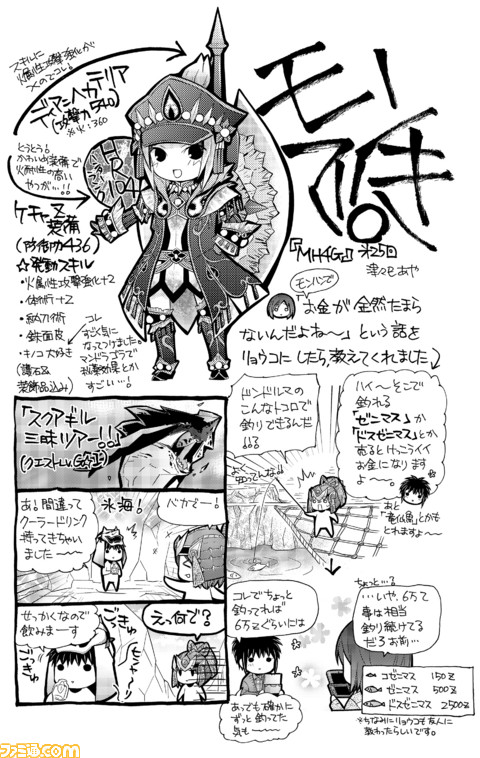 モンハン
『MH4G』第25回
津々巳あや
スキルに
火属性攻撃強化が
×のでコレ!
ディア=ハカテリア
(攻撃力540)
※※:360
とうとう!
かわいい装備で
火耐性の高い
やつが…!!
ハンターランク
HR104
ケチャ又
装備
(防御力436)
☆発動スキル
・火属性攻撃強化+2
・体術+2
・納刀術
・鉄面皮
・キノコ大好き
(護石&
装飾品込み)
コレ
すごく気に
なってつけました
マンドラゴラで
秘薬効果とか
すごい…!
モンハンで
「お金が全然たまら
ないんだよね〜」という話を
リョウコにしたら、教えてくれました
「スクアギル
三昧ツアー!!」
(クエストLv.G級1)
氷海!
あ!間違って
クーラードリンク
持ってきちゃい
ました〜〜
バカだー!
せっかくなので
飲みまーす
ごきゅ
ごきゅ
えっ何で?
ドンドルマの
こんなトコロで
釣りできるんだ
!!?
よく知ってんな…
ハイ〜そこで
釣れる
「ゼニマス」か
「ドスゼニマス」とか
売るとけっこうイイ
お金になります
よ〜
あと
「竜仙魚」とかも
とれますよ〜
コレでちょっと
釣ってれば
6万Zぐらいには
あっでも確かに
ずっと釣ってた
気も〜〜
ちょっと…?
…いや、6万て
事は相当
釣り続けてる
だろお前…
コゼニマス 150Z
ゼニマス 500Z
ドスゼニマス 2500Z
※ちなみにリョウコも友人に
教わったらしいです。
ファミ通.com